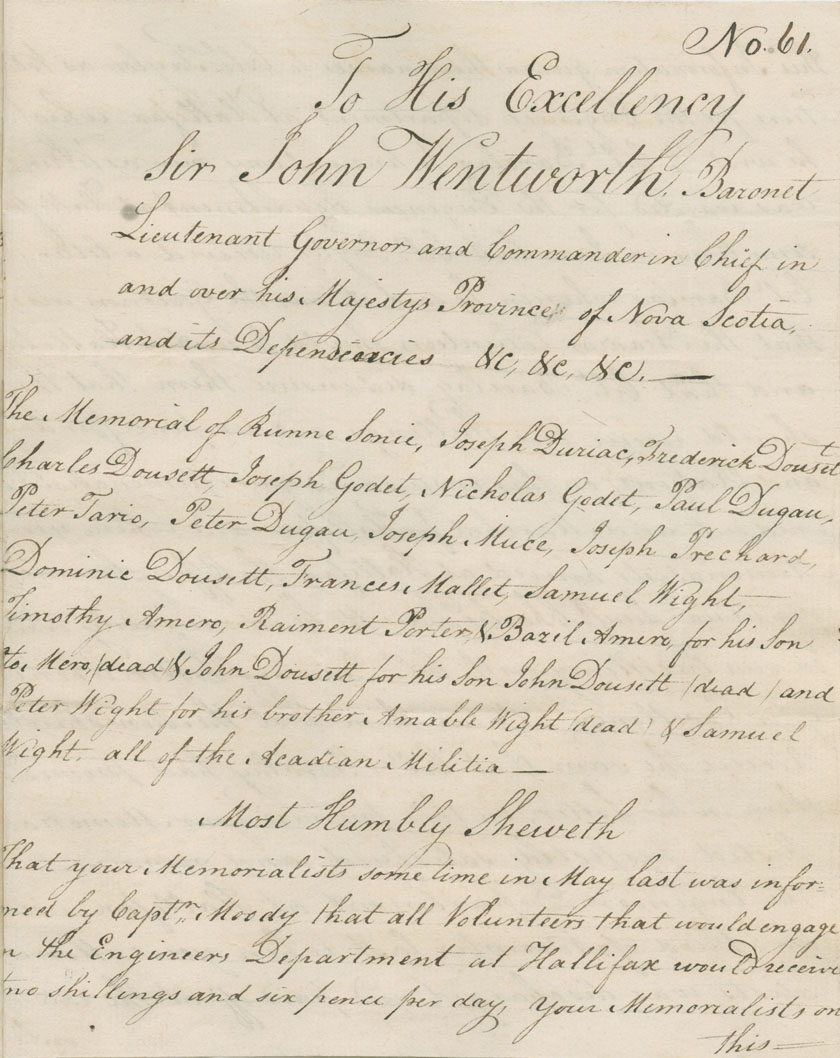 No. 61.
To His Excellency
Sir John Wentworth. Baronet
Lieutenant Governor and Commander in Chief in
and over his Majestys Province of Nova Scotia,
and its Dependencies &c, &c, &c. —
The Memorial of Runne Sonic, Joseph Duriac, Frederick Dousett
Charles Dousett, Joseph Godet, Nicholas Godet, Paul Dugau,
Peter Tario, Peter Dugau, Joseph Muce, Joseph Prechard,
Dominic Dousett, Frances Mallet, Samuel Wight,
Timothy Amero, Raiment Porter, & Bazil Amero, for his Son
Mero, (dead) & John Dousett for his Son John Dousett (dead) and
Peter Wight for his brother Amable Wight (dead) & Samuel
Wight. all of the Acadian Militia —
Most Humbly Sheweth
That your Memorialists some time in May last was infor=
med by Captn. Moody that all Volunteers that would engage
in the Engineers Department at Hallifax would receive
two shillings and six pence per day, Your Memorialists on
this =